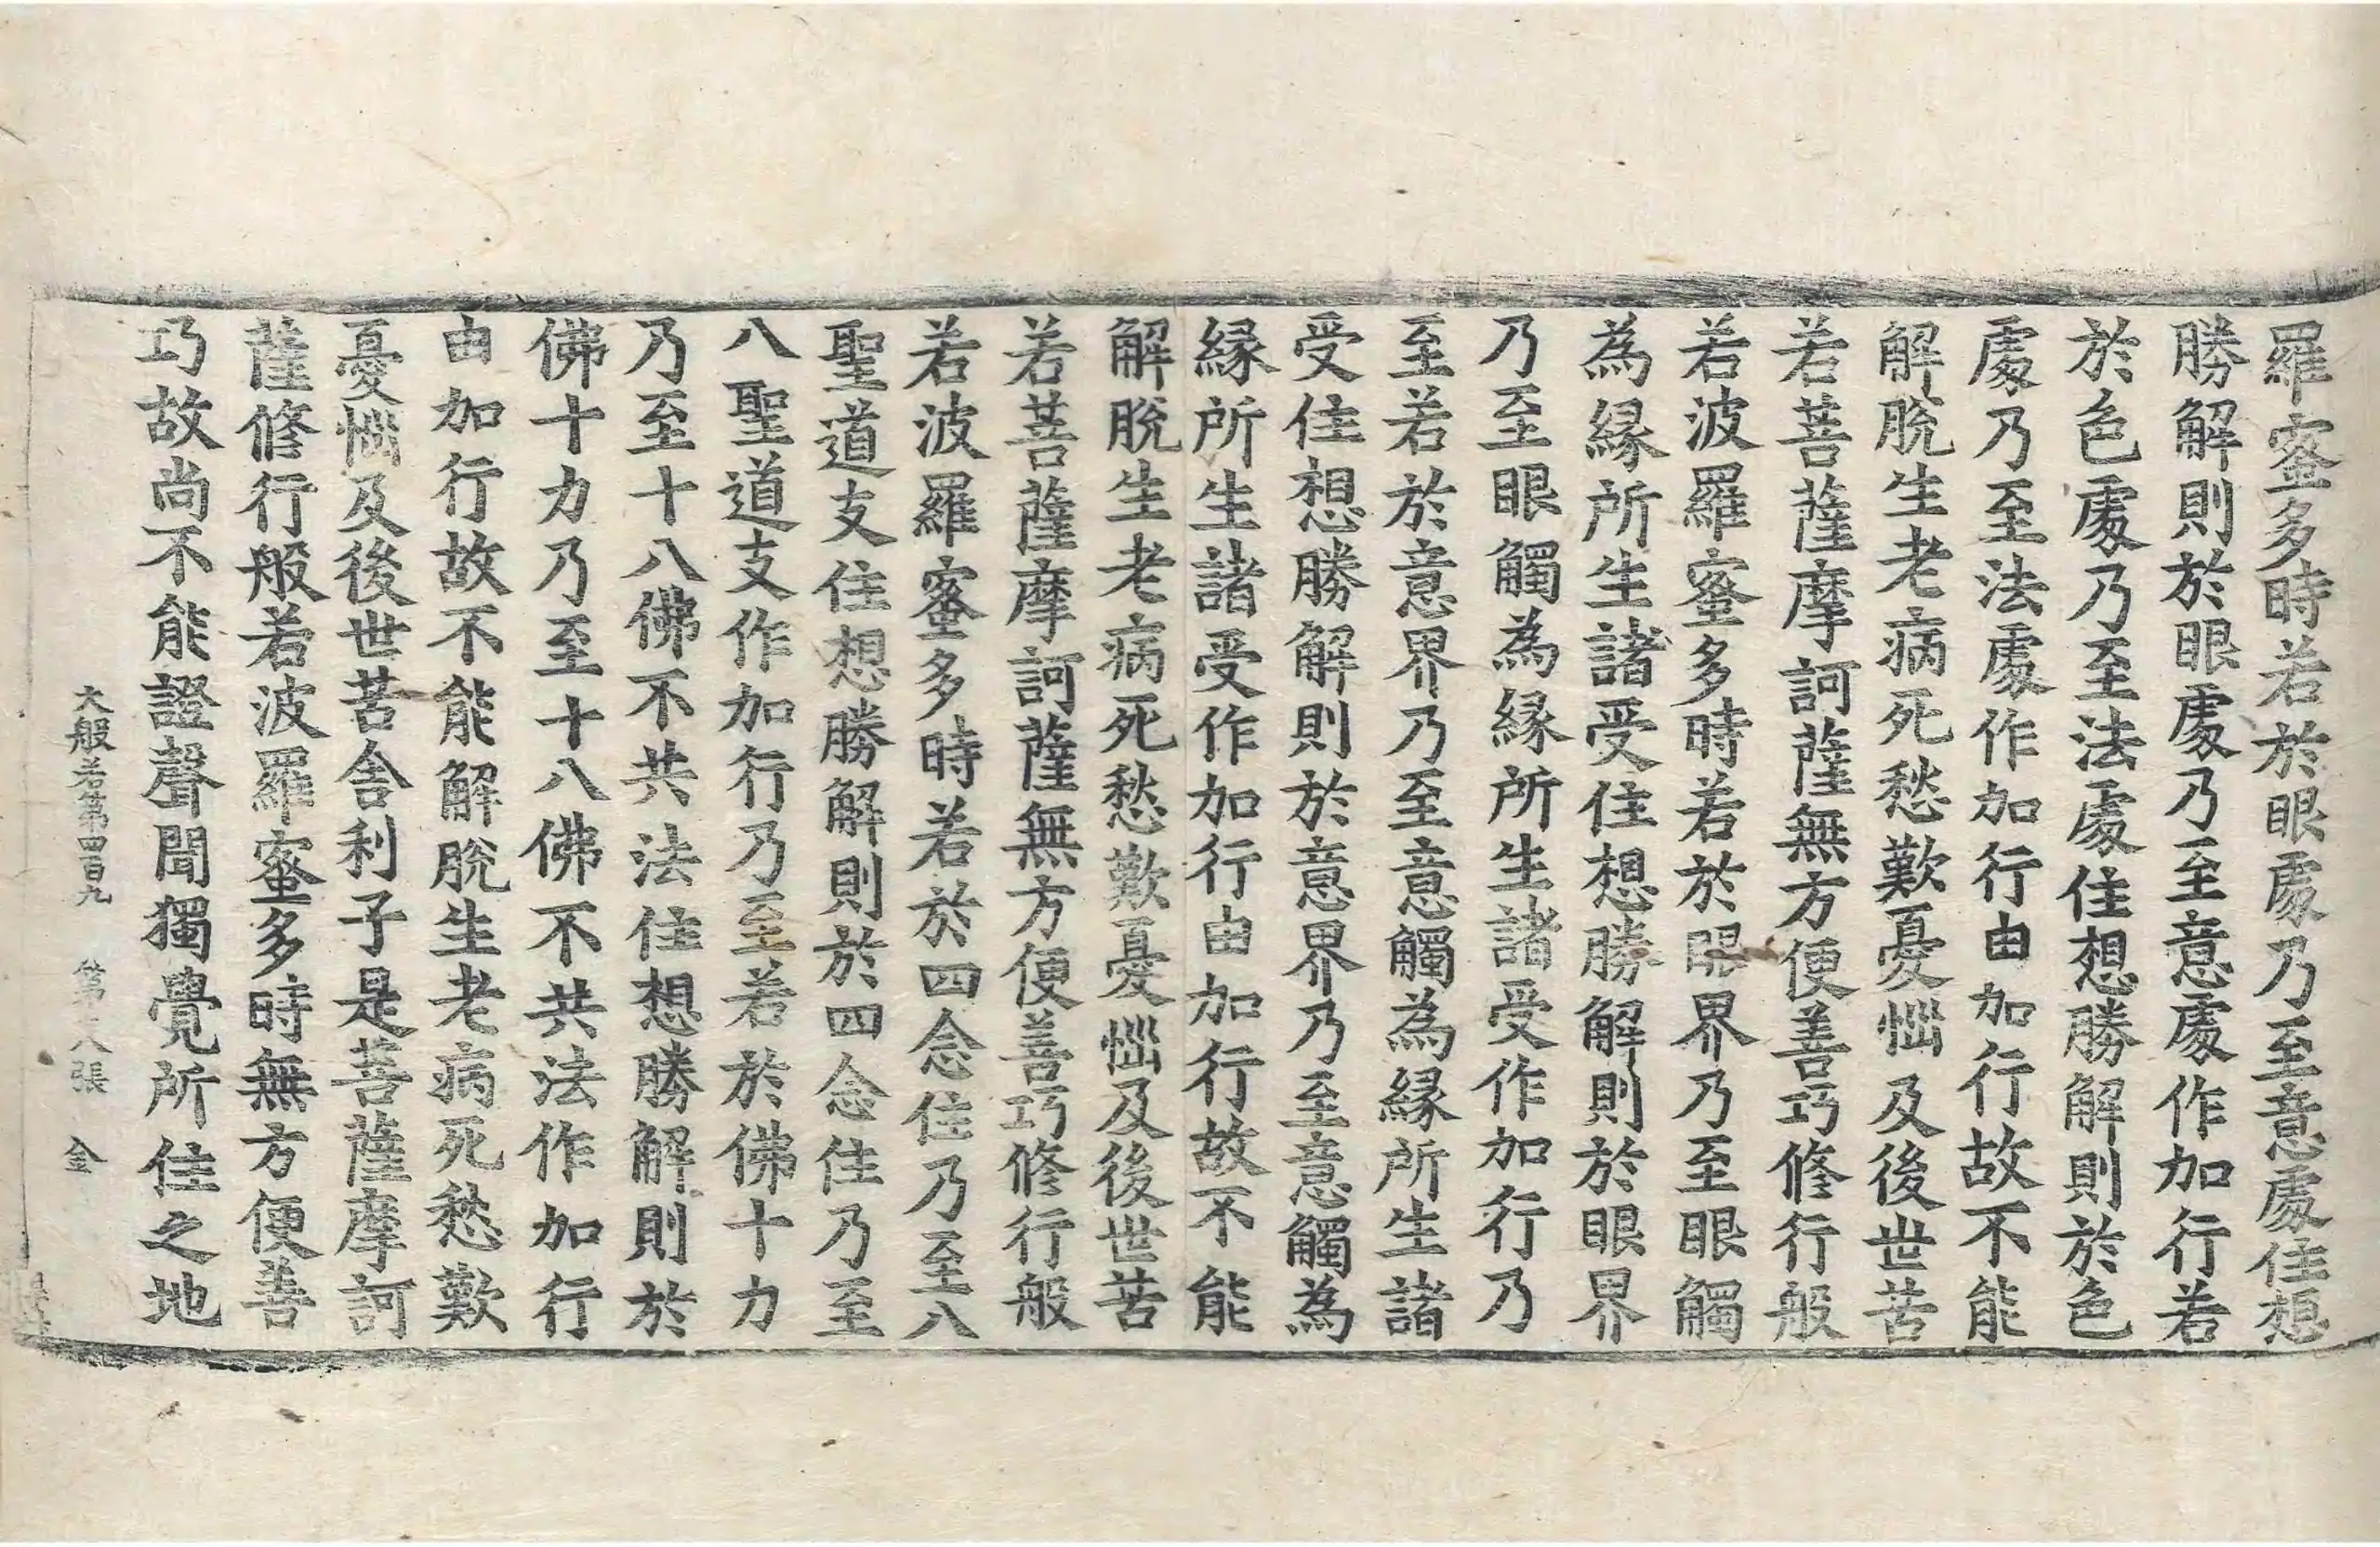 羅蜜多時若於眼處乃至意處住想
勝解則於眼處乃至意處作加行若
於色處乃至法處住想勝解則於色
處乃至法處作加行由加行故不能
解脫生老病死愁歎憂惱及後世苦
若菩薩摩訶薩無方便善巧修行般
若波羅蜜多時若於眼界乃至眼觸
為緣所生諸受住想勝解則於眼界
乃至眼觸為緣所生諸受作加行乃
至若於意界乃至意觸為緣所生諸
受住想勝解則於意界乃至意觸為
緣所生諸受作加行由加行故不能
解脫生老病死愁歎憂惱及後世苦
若菩薩摩訶薩無方便善巧修行般
若波羅蜜多時若於四念住乃至八
聖道支住想勝解則於四念住乃至
八聖道支作加行乃至若於佛十力
乃至十八佛不共法住想勝解則於
佛十力乃至十八佛不共法作加行
由加行故不能解脫生老病死愁歎
憂惱及後世苦舍利子是菩薩摩訶
薩修行般若波羅蜜多時無方便善
巧故尚不能證聲聞獨覺所住之地
大般若第四百九 第十八張 金